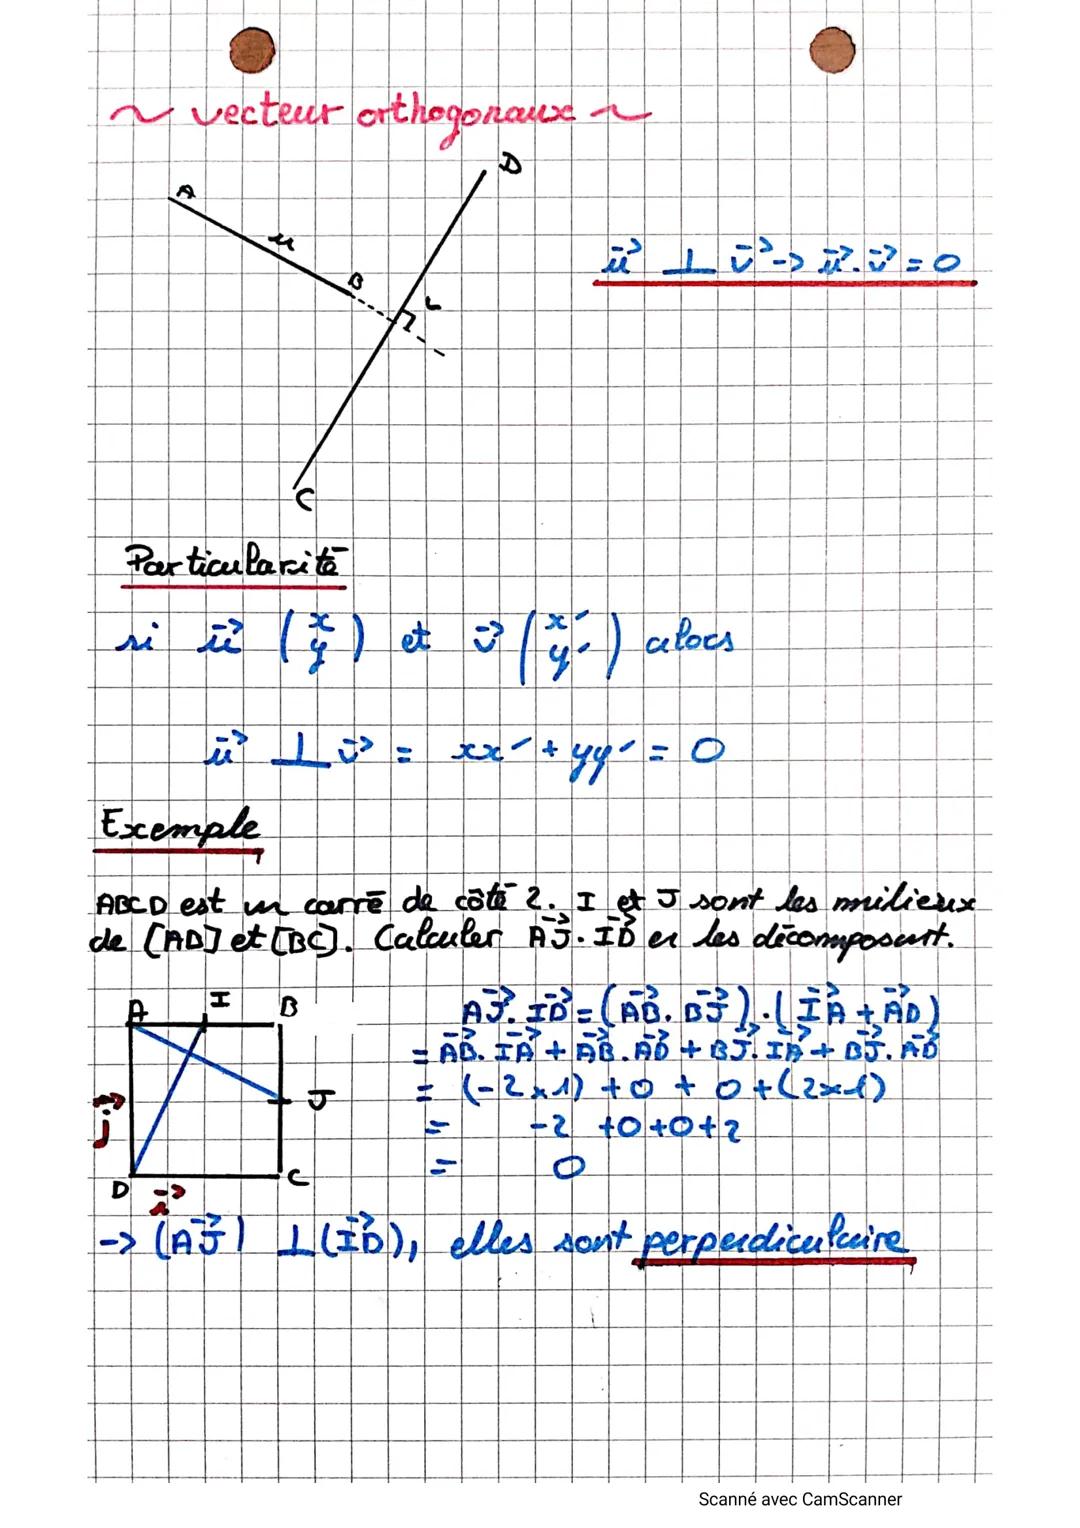 ~ vecteur orthogonaux ~
D
A
u
B
v
C
u⃗ ⊥ v⃗ -> u⃗.v⃗ = 0
Particularité
si u⃗ (x y) et v⃗ (x' y') alors
u⃗ ⊥ v⃗ = xx' + yy' = 0
Exemple
ABCD est un carré de côté 2. I et J sont les milieux
de [AB] et [BC]. Calculer AJ⃗.ID⃗ en les décomposant.
A I B
J
j⃗
D i⃗ C
AJ⃗.ID⃗ = (AB⃗.BJ⃗).(IA⃗ + AD⃗)
= AB⃗.IA⃗ + AB⃗.AD⃗ + BJ⃗.IA⃗ + BJ⃗.AD⃗
= (-2x1) + 0 + 0 + (2x1)
= -2 +0+0+2
= 0
-> (AJ⃗) ⊥ (ID⃗), elles sont perpendiculaire
Scanné avec CamScanner